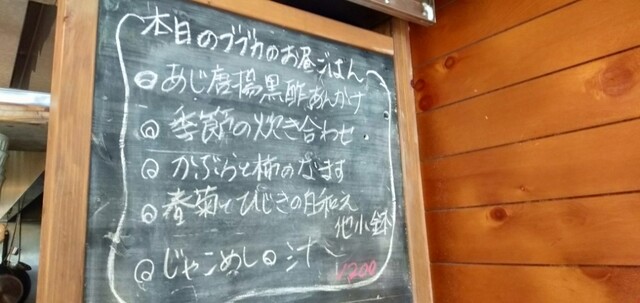 本日のブブカのお昼ごはん
◎あじ唐揚黒酢あんかけ
◎季節の炊き合わせ
◎かぶらと柿のなます
◎春菊とひじきの白和え
他小鉢
◎じゃこめし◎汁
1200